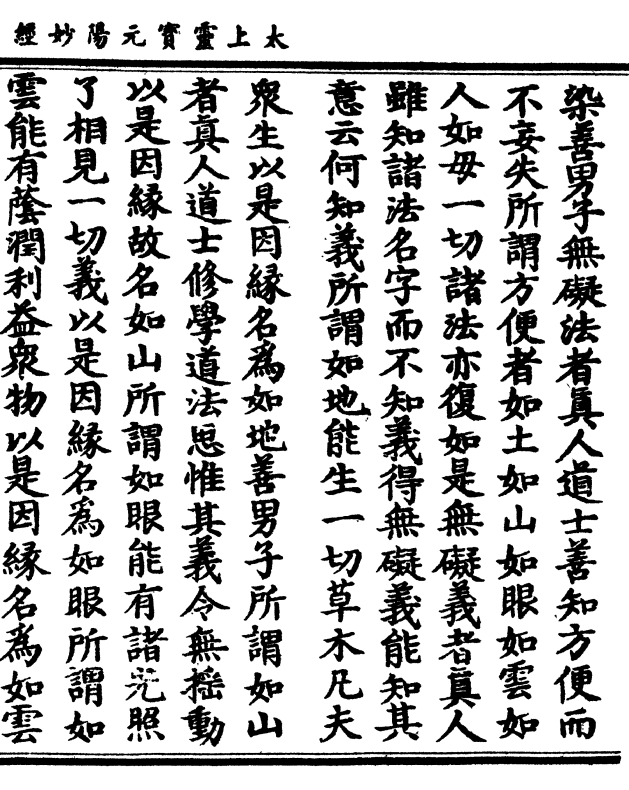 太上靈寶元陽妙經
染善男子無礙法者真人道士善知方便而
不妄失所謂方便者如土如山如眼如雲如
人如母一切諸法亦復如是無礙義者真人
雖知諸法名字而不知義得無礙義能知其
意云何知義所謂如地能生一切草木凡夫
衆生以是因緣名爲如地善男子所謂如山
者真人道士修學道法思惟其義令無摇動
以是因緣故名如山所謂如眼能有諸光照
了相見一切義以是因緣名爲如眼所謂如
雲能有蔭潤利益衆物以是因緣名爲如雲